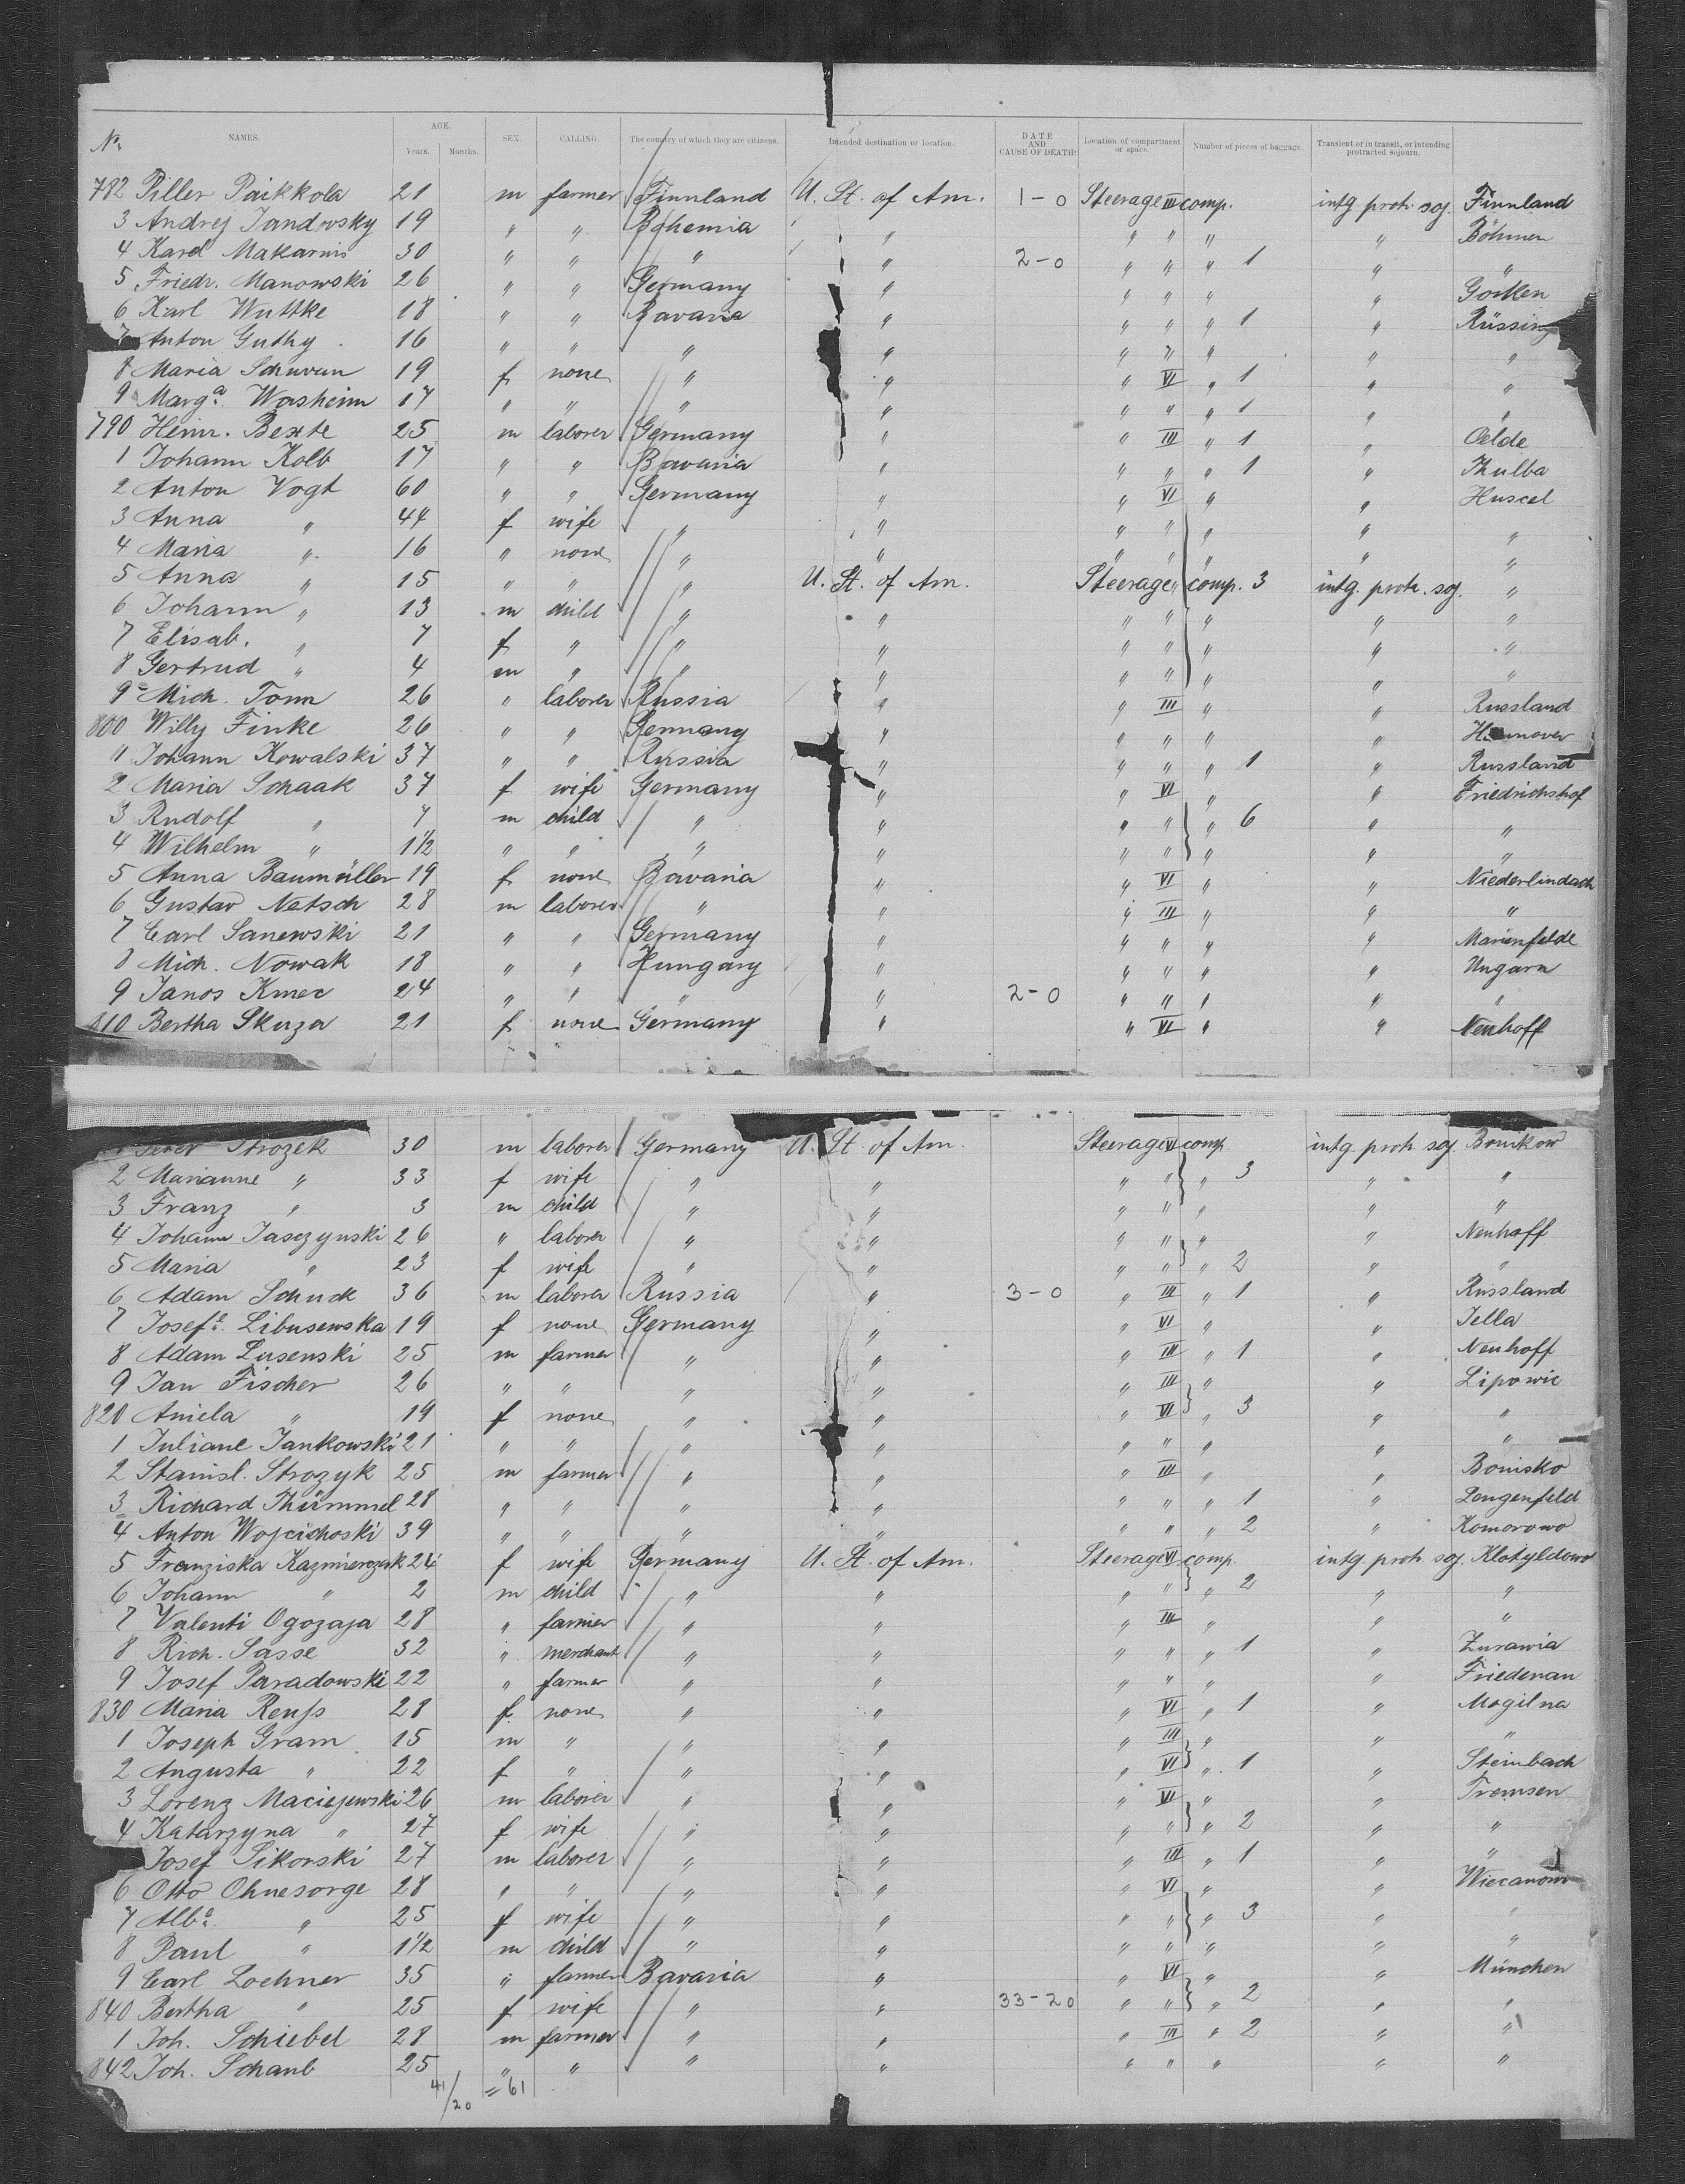 No. NAMES. AGE. Years. Months. SEX. CALLING. The country of which they are citizens. Intended destination or location. DATE AND CAUSE OF DEATH. Location of compartment or space. Number of pieces of baggage. Transient or in transit, or intending protracted sojourn.
782 Piller Paikkola 21 m farmer Finnland U. St. of Am. 1-0 Steerage III comp. intg. protr. soj. Finnland
3 Andrej Jandovsky 19 " " Bohemia " " " " " Böhmen
4 Karel Makarius 30 " " " " 2-0 " " " 1 " "
5 Friedr. Manowski 26 " " Germany " " " " " Görken
6 Karl Wuttke 18 " " Bavaria " " " " 1 " Rüssing
7 Anton Guthy 16 " " " " " " " " "
8 Maria Schwan 19 f none " " " VI " 1 " "
9 Marga. Washeim 17 " " " " " " " 1 " "
790 Heinr. Bexte 25 m laborer Germany " " III " 1 " Oelde
1 Johann Kolb 17 " " Bavaria " " " " 1 " Thulba
2 Anton Vogt 60 " " Germany " " VI " " Huscel
3 Anna " 44 f wife " " " " " " "
4 Maria " 16 " none " " " " " " "
5 Anna " 15 " " " U. St. of Am. Steerage " comp. 3 intg. protr. soj. "
6 Johann " 13 m child " " " " " " "
7 Elisab. " 7 f " " " " " " " "
8 Gertrud " 4 m " " " " " " " "
9 Mich. Tonn 26 " laborer Russia " " III " " Russland
800 Willy Finke 26 " " Germany " " " " " Hannover
1 Johann Kowalski 37 " " Russia " " " " 1 " Russland
2 Maria Schaak 37 f wife Germany " " VI " " Friedrichshof
3 Rudolf " 7 m child " " " " " 6 " "
4 Wilhelm " 1 1/2 " " " " " " " " "
5 Anna Baumüller 19 f none Bavaria " " VI " " Niederlindach
6 Gustav Netsch 28 m laborer " " " III " " "
7 Carl Sanewski 21 " " Germany " " " " " Marienfelde
8 Mich. Nowak 18 " " Hungary " " " " " Ungarn
9 Janos Kmec 24 " " " " 2-0 " " " " "
810 Bertha Skuza 21 f none Germany " " VI " " Neuhoff
Peter Strozek 30 m laborer Germany U. St. of Am. Steerage VI comp intg. protr. soj.
2 Marianne " 33 f wife " " " " " 3 " "
3 Franz " 3 m child " " " " " " "
4 Johann Jasczynski 26 " laborer " " " " " " Neuhoff
5 Maria " 23 f wife " " " " " 2 " "
6 Adam Schuck 36 m laborer Russia " 3-0 " III " 1 " Russland
7 Josefe. Libusewska 19 f none Germany " " VI " " Jella
8 Adam Lusenski 25 m farmer " " " III " 1 " Neuhoff
9 Jan Fischer 26 " " " " " III " " Lipowic
820 Aniela " 19 f none " " " VI " 3 " "
1 Juliane Jankowski 21 " " " " " " " " "
2 Stanisl. Strozyk 25 m farmer " " " III " " Bonisko
3 Richard Thümmel 28 " " " " " " " 1 " Lengenfeld
4 Anton Wojcichoski 39 " " " " " " " 2 " Komorowo
5 Franziska Kazmierczak 24 f wife Germany U. St. of Am. Steerage VI comp. intg. protr. soj. Klotyldowo
6 Johann " 2 m child " " " " " 2 " "
7 Valenti Ogozaja 28 " farmer " " " III " " "
8 Rich. Sasse 32 " merchant " " " " " 1 " Zurawia
9 Josef Paradowski 22 " farmer " " " " " " Friedenau
830 Maria Reuss 28 f none " " " VI " 1 " Mogilna
1 Joseph Gram 15 m " " " " III " " "
2 Augusta " 22 f " " " " VI " 1 " Steinbach
3 Lorenz Maciejewski 26 m laborer " " " VI " " Tremsen
4 Katarzyna " 27 f wife " " " " " 2 " "
Josef Sikorski 27 m laborer " " " III " 1 " "
6 Otto Ohnesorge 28 " " " " " VI " " Wiecanowo
7 Alba. " 25 f wife " " " " " 3 " "
8 Paul " 1 1/2 m child " " " " " " "
9 Carl Lochner 35 " farmer Bavaria " " VI " " München
840 Bertha " 25 f wife " " 33-20 " " " 2 " "
1 Joh. Schiebel 28 m farmer " " " III " 2 " "
842 Joh. Schaub 25 " " " " " " " " "
41/20 = 61